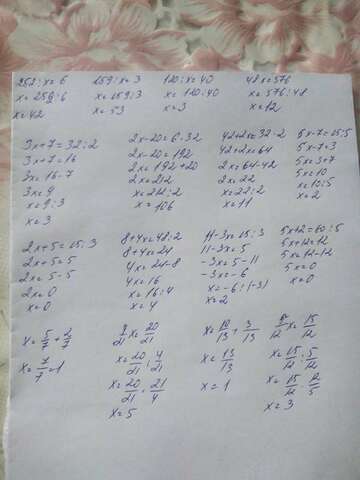 252 : x = 6
x = 252 : 6
x = 42
159 : x = 3
x = 159 : 3
x = 53
120 : x = 40
x = 120 : 40
x = 3
48x = 576
x = 576 : 48
x = 12
3x + 7 = 32 : 2
3x + 7 = 16
3x = 16 - 7
3x = 9
x = 9 : 3
x = 3
2x - 20 = 6 · 32
2x - 20 = 192
2x = 192 + 20
2x = 212
x = 212 : 2
x = 106
42 + 2x = 32 · 2
42 + 2x = 64
2x = 64 - 42
2x = 22
x = 22 : 2
x = 11
5x - 7 = 15 : 5
5x - 7 = 3
5x = 3 + 7
5x = 10
x = 10 : 5
x = 2
2x + 5 = 15 : 3
2x + 5 = 5
2x = 5 - 5
2x = 0
x = 0
8 + 4x = 48 : 2
8 + 4x = 24
4x = 24 - 8
4x = 16
x = 16 : 4
x = 4
11 - 3x = 15 : 3
11 - 3x = 5
-3x = 5 - 11
-3x = -6
x = -6 : (-3)
x = 2
5x + 12 = 60 : 5
5x + 12 = 12
5x = 12 - 12
5x = 0
x = 0
x = 5/7 + 2/7
x = 7/7 = 1
x = 20/21
x = 20/21 : 4/21
x = 20/21 · 21/4
x = 5
x = 10/13 + 3/13
x = 13/13
x = 1
x = 15/12
x = 15/12 : 5/12
x = 15/12 · 12/5
x = 3